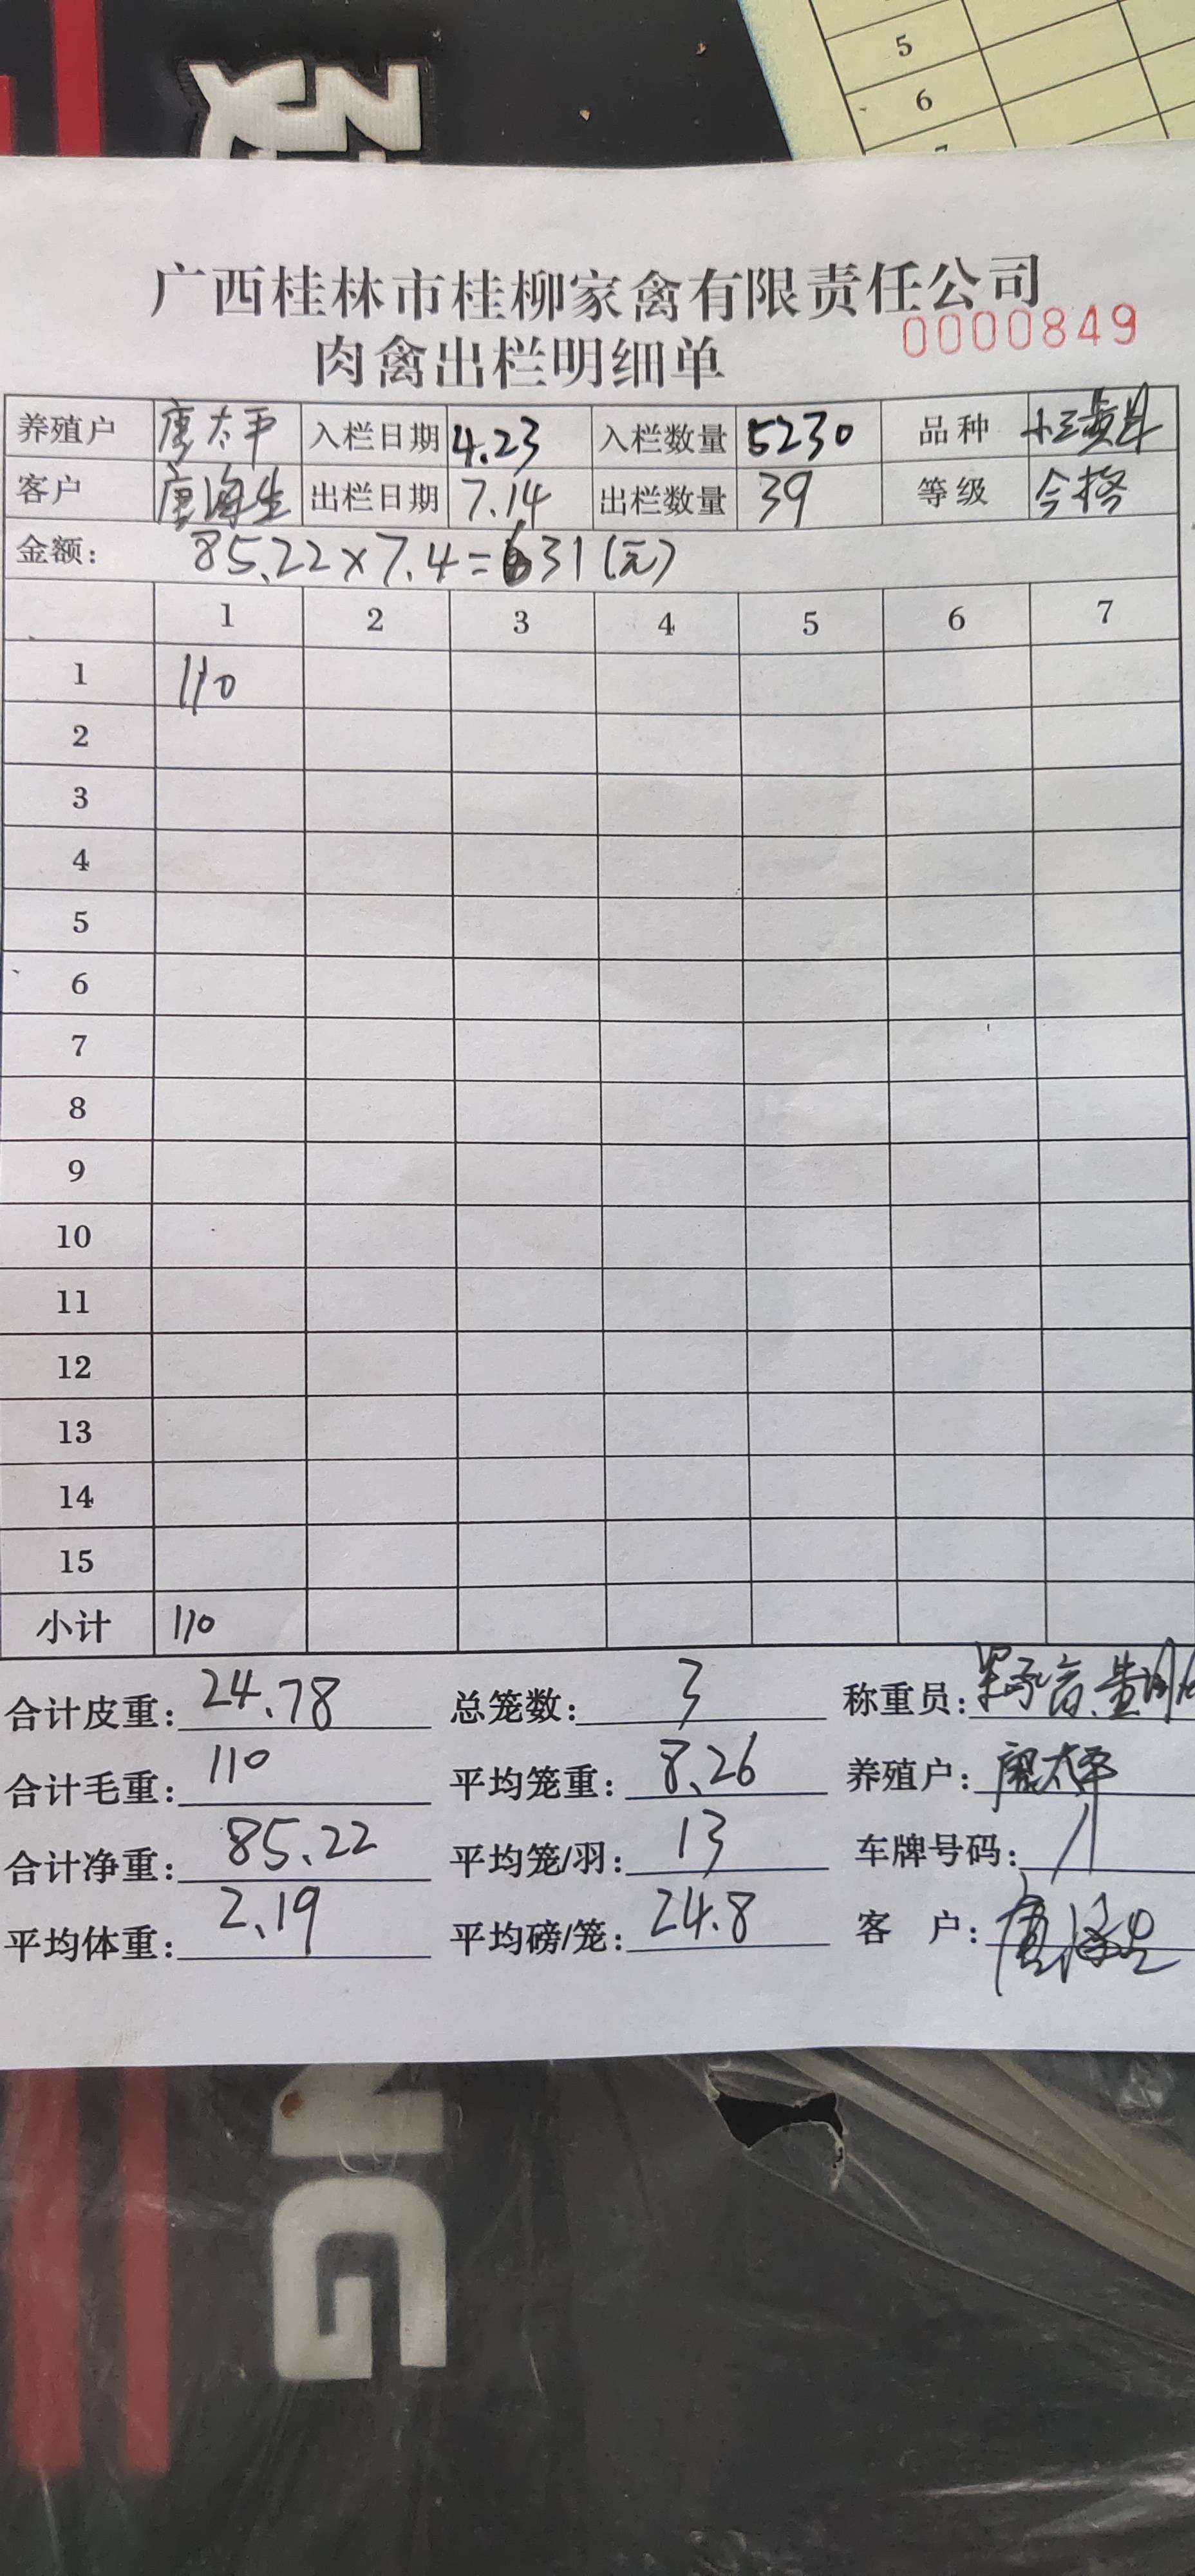 5
6
7
广西桂林市桂柳家禽有限责任公司
0000849
肉禽出栏明细单
养殖户 唐太平 入栏日期 4.23 入栏数量 5230 品种 小三黄
客户 唐海生 出栏日期 7.14 出栏数量 39 等级 合格
金额: 85.22×7.4=631(元)
1 2 3 4 5 6 7
1 110
2
3
4
5
6
7
8
9
10
11
12
13
14
15
小计 110
合计皮重: 24.78 总笼数: 3 称重员:
合计毛重: 110 平均笼重: 8.26 养殖户: 唐太平
合计净重: 85.22 平均笼/羽: 13 车牌号码:
平均体重: 2.19 平均磅/笼: 24.8 客 户: 唐海生
NG